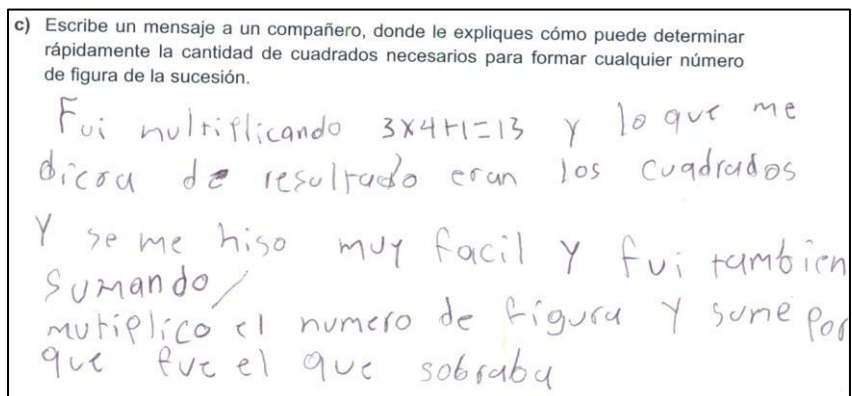 c) Escribe un mensaje a un compañero, donde le expliques cómo puede determinar
rápidamente la cantidad de cuadrados necesarios para formar cualquier número
de figura de la sucesión.
Fui multiplicando 3x4+1=13 y lo que me
diera de resultado eran los cuadrados
Y se me hiso muy facil y fui tambien
sumando/
mutiplico el numero de figura y sume por
que fue el que sobraba